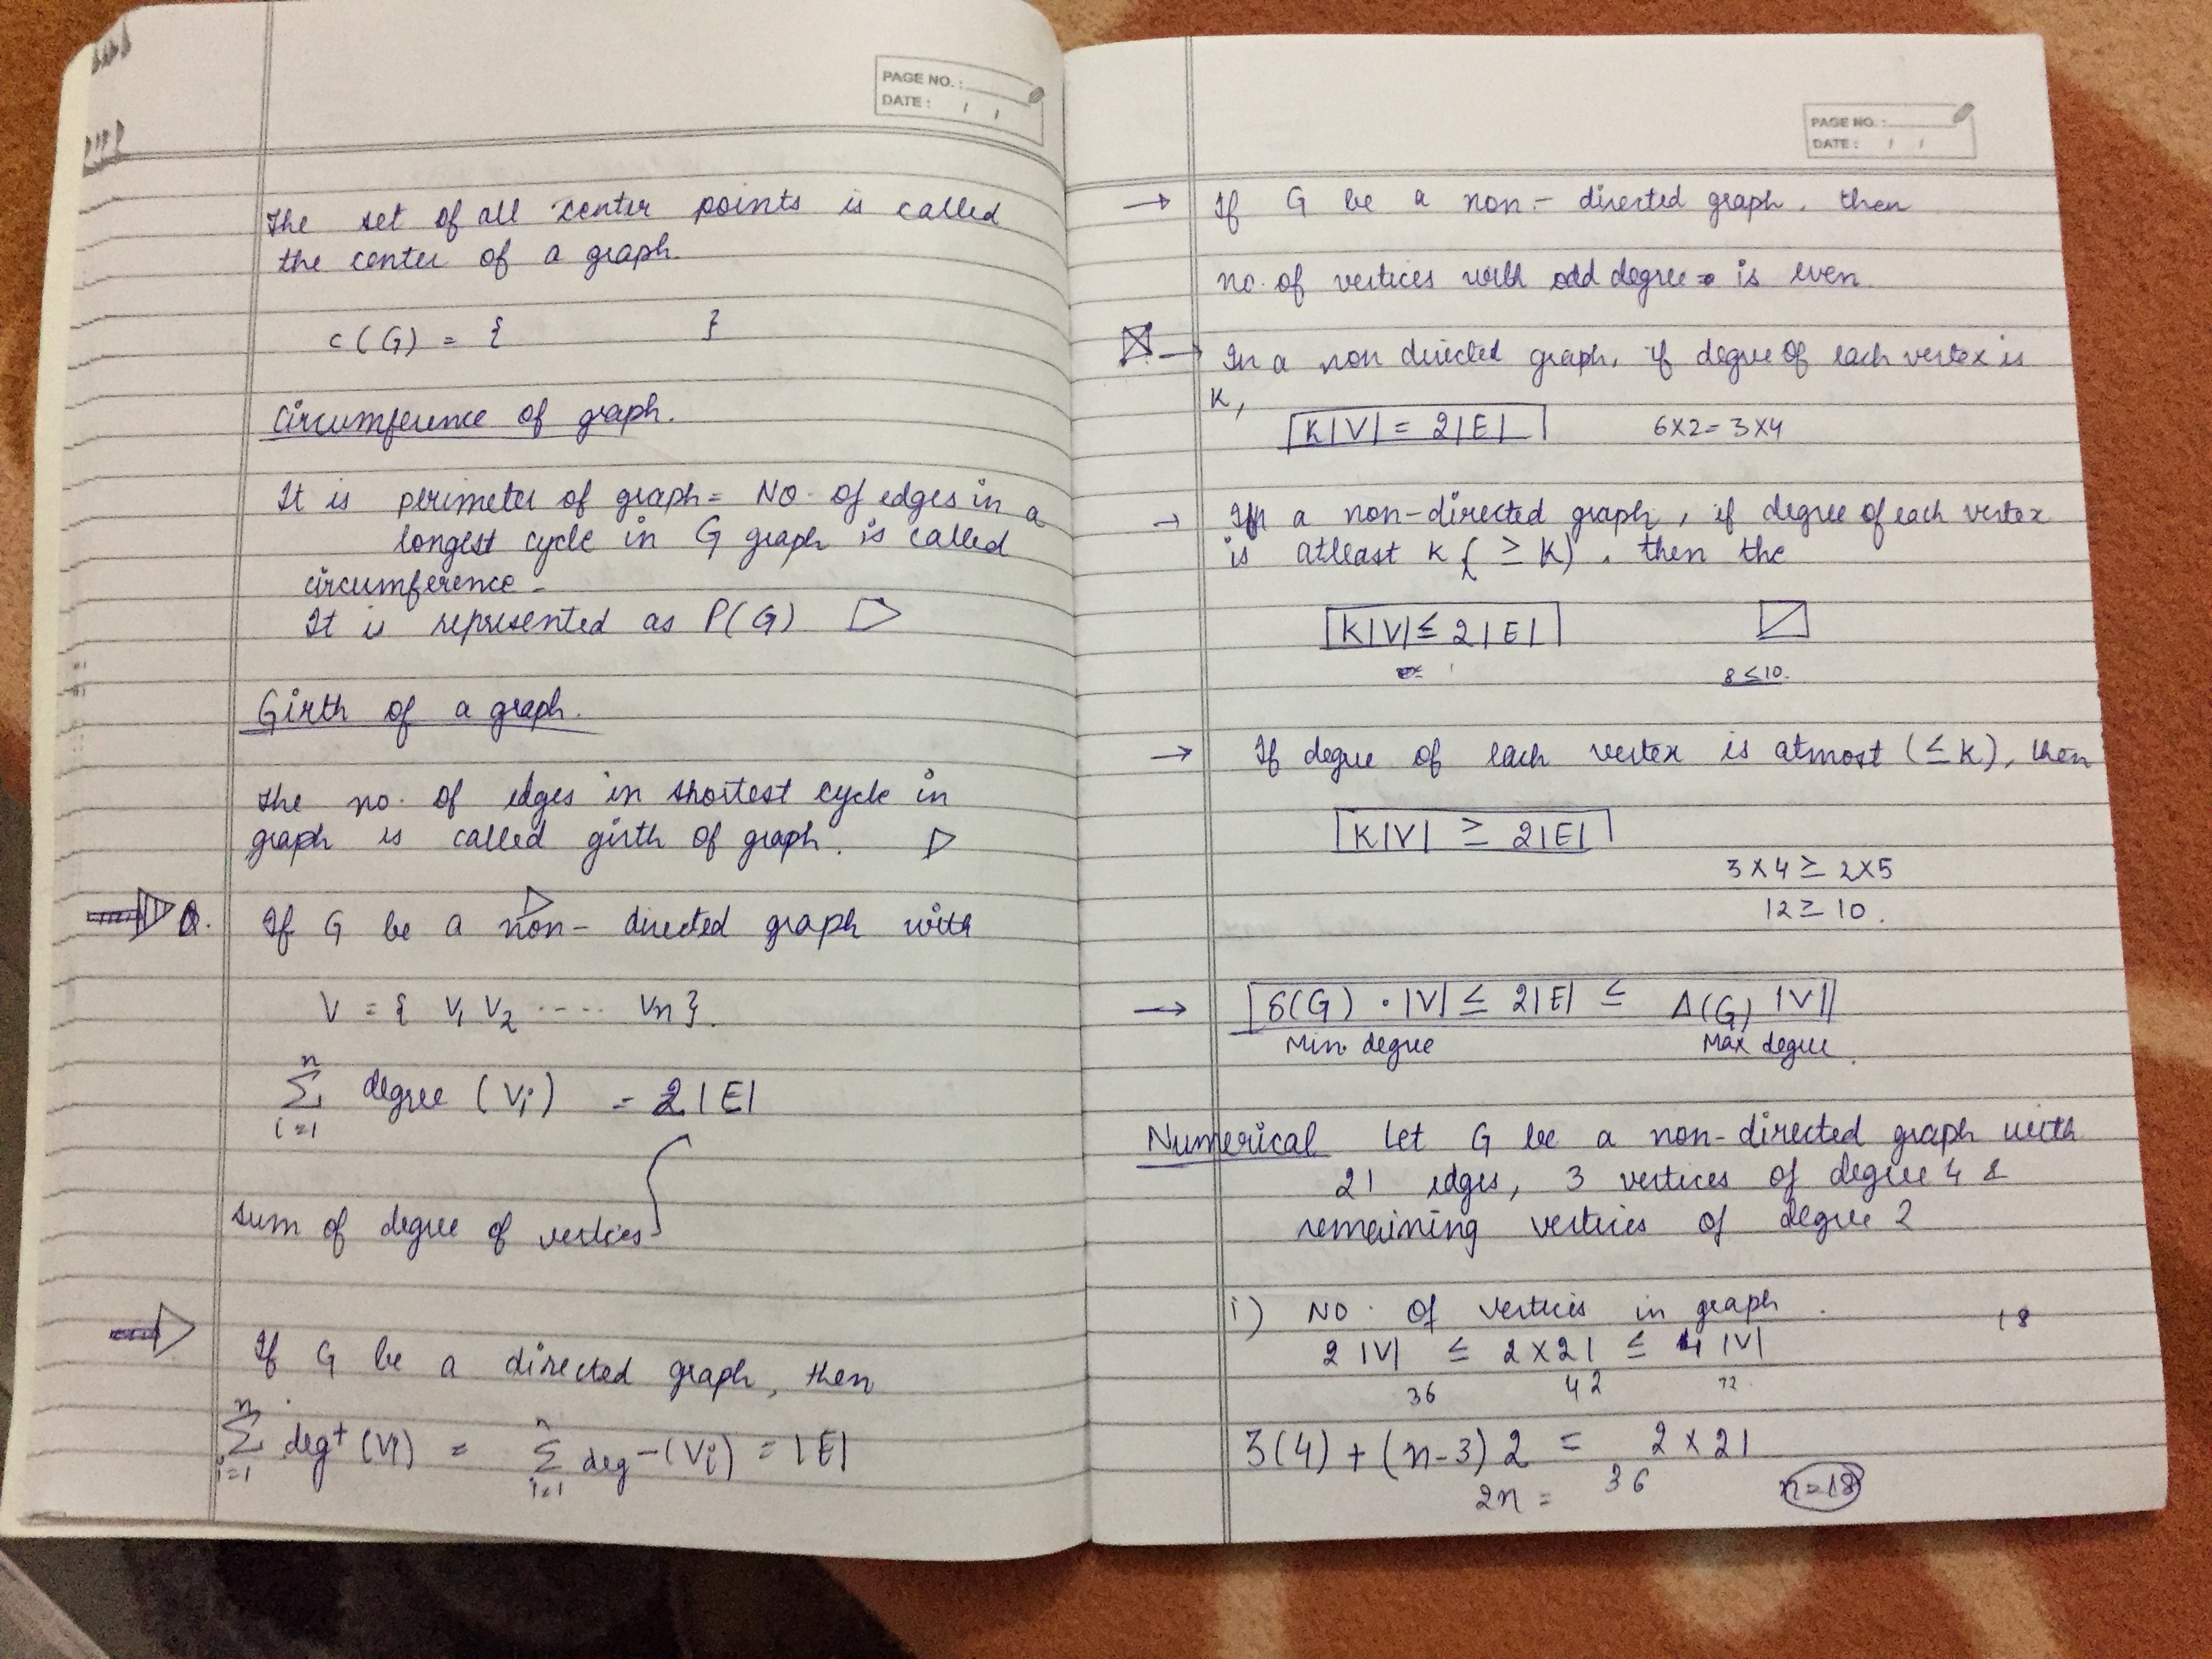 PAGE NO. :
DATE : / /
The set of all center points is called
the center of a graph.
C(G) = { }
Circumference of graph.
It is perimeter of graph = NO. of edges in a
longest cycle in G graph is called
circumference -
It is represented as P(G)
Girth of a graph.
The no. of edges in shortest cycle in
graph is called girth of graph.
Q. If G be a non- directed graph with
V = { V1 V2 ..... Vn }.
n
Σ degree (Vi) = 2|E|
i=1
sum of degree of vertices
If G be a directed graph, then
n n
Σ deg+ (Vi) = Σ deg- (Vi) = |E|
i=1 i=1
PAGE NO. :
DATE : / /
→ If G be a non- directed graph, then
no. of vertices with odd degree is even.
→ In a non directed graph, if degree of each vertex is
K,
K|V| = 2|E| 6x2=3x4
→ In a non-directed graph, if degree of each vertex
is atleast K ( ≥ K) , then the
K|V| ≤ 2|E|
8≤10.
→ If degree of each vertex is atmost (≤ K), then
K|V| ≥ 2|E|
3x4 ≥ 2x5
12 ≥ 10.
→ δ(G) . |V| ≤ 2|E| ≤ Δ(G) |V|
Min. degree Max degree.
Numerical Let G be a non-directed graph with
21 edges, 3 vertices of degree 4 &
remaining vertices of degree 2
i) NO. of vertices in graph . 18
2 |V| ≤ 2 x 21 ≤ 4 |V|
36 42 72
3(4) + (n-3) 2 = 2 x 21
2n = 36 n=18